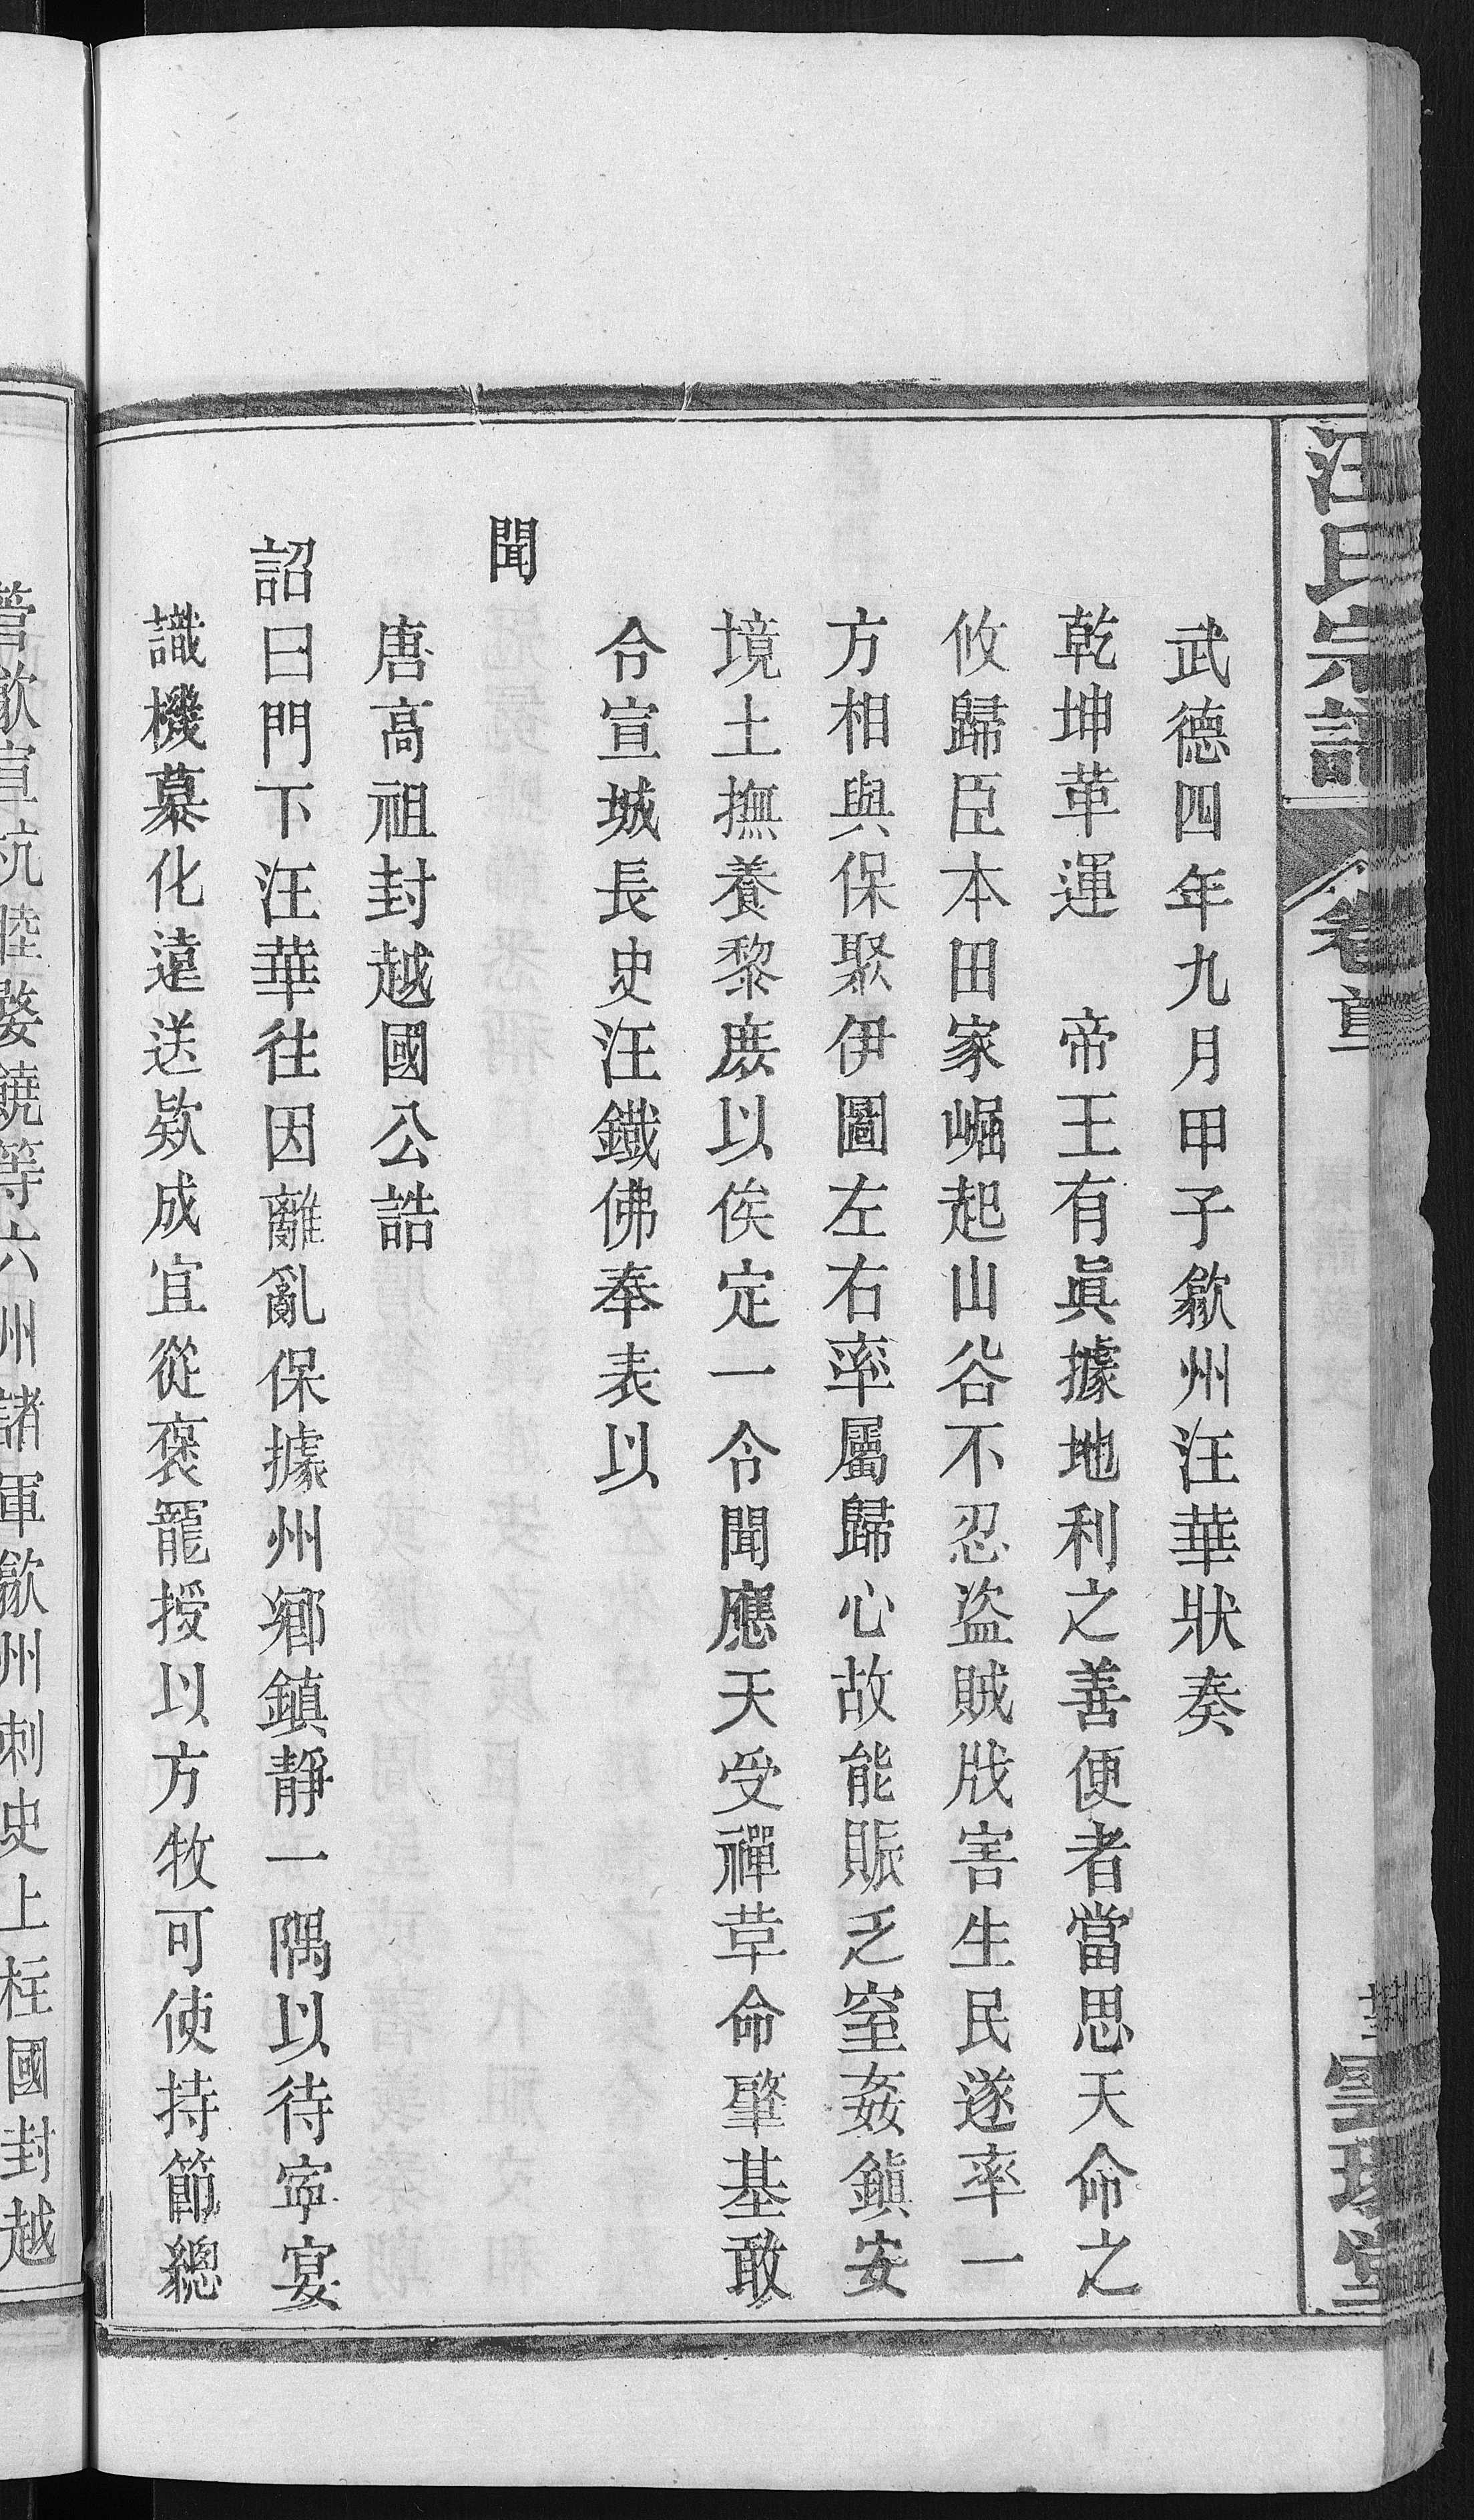 汪氏宗譜
卷首
武德四年九月甲子歙州汪華狀奏
乾坤革運　帝王有眞據地利之善便者當思天命之
攸歸臣本田家崛起山谷不忍盜賊戕害生民遂率一
方相與保聚伊圖左右率屬歸心故能賑乏窒姦鎭安
境土撫養黎庶以俟定一令聞應天受禪草命肇基敢
令宣城長史汪鐵佛奉表以
聞
唐高祖封越國公誥
詔曰門下汪華往因離亂保據州鄉鎮靜一隅以待寜宴
識機慕化遠送欵成宜從褒寵授以方牧可使持節總
管歙宣杭睦婺饒等六州諸軍歙州刺史上柱國封越